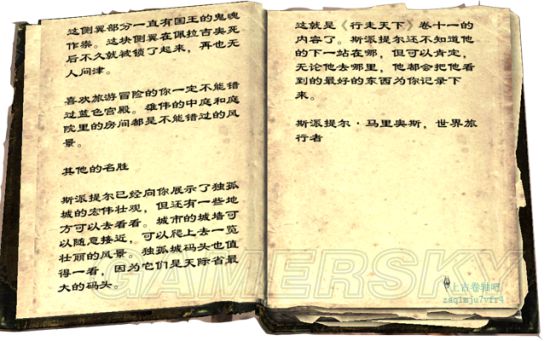 这侧翼部分一直有国王的鬼魂
作祟。这块侧翼在佩拉吉奥死
后不久就被锁了起来，再也无
人问津。
喜欢旅游冒险的你一定不能错
过蓝色宫殿。雄伟的中庭和庭
院里的房间都是不能错过的风
景。
其他的名胜
斯派提尔已经向你展示了独孤
城的宏伟壮观，但还有一些地
方可以去看看。城市的城墙可
以随意接近，可以爬上去一览
壮丽的风景。独孤城码头也值
得一看，因为它们是天际省最
大的码头。
这就是《行走天下》卷十一的
内容了。斯派提尔还不知道他
的下一站在哪，但可以肯定，
无论他去哪里，他都会把他看
到的最好的东西为你记录下
来。
斯派提尔·马里奥斯，世界旅
行者
GAMERSKY
上古卷轴吧
zaq1mju7vfr4